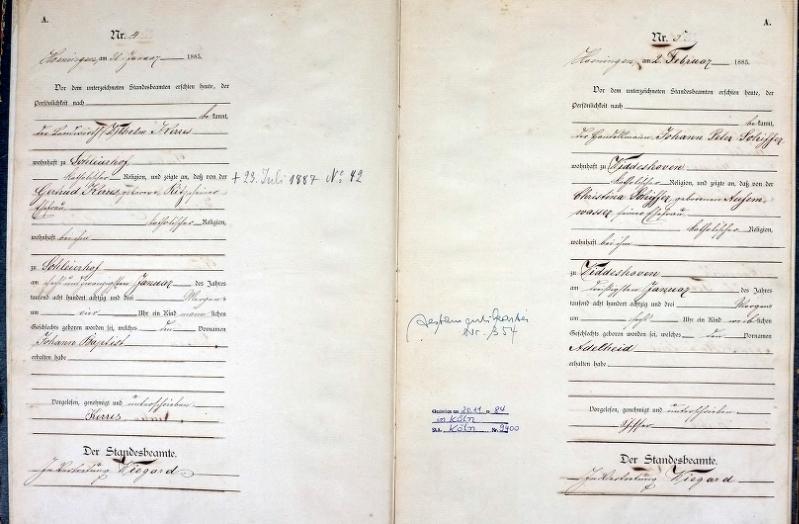 A.
Nr. 4
Honningen, am 31. Januar 1885.
Vor dem unterzeichneten Standesbeamten erschien heute, der
Persönlichkeit nach
be kannt,
der Landwirth Wilhelm Kerres
wohnhaft zu Schleierhof
katholischer Religion, und zeigte an, daß von der
Gertrud Kerres geborene
Ehefrau
katholischer Religion,
wohnhaft bei ihm
zu Schleierhof
am sechs und zwanzigsten Januar des Jahres
tausend acht hundert achtzig und drei Morgens
um vier Uhr ein Kind männlichen
Geschlechts geboren worden sei, welches den Vornamen
Johann Baptist
erhalten habe
Vorgelesen, genehmigt und unterschrieben
Kerres
Der Standesbeamte.
In Vertretung Wiegard
+ 23. Juli 1887 No 42
A.
Nr. 5
Honningen, am 2. Februar 1885.
Vor dem unterzeichneten Standesbeamten erschien heute, der
Persönlichkeit nach
be kannt,
der Handelsmann Johann Peter Schiffer
wohnhaft zu Widdeshoven
katholischer Religion, und zeigte an, daß von der
Christina Schiffer geborenen
wasser seiner Ehefrau
katholischer Religion,
wohnhaft bei ihm
zu Widdeshoven
am dreißigsten Januar des Jahres
tausend acht hundert achtzig und drei Morgens
um sechs Uhr ein Kind weiblichen
Geschlechts geboren worden sei, welches den Vornamen
Adelheid
erhalten habe
Vorgelesen, genehmigt und unterschrieben
Der Standesbeamte.
In Vertretung Wiegard
Nr. 354
Gestorben am 20.11. 1984
in Köln
StA Köln Nr. 2400